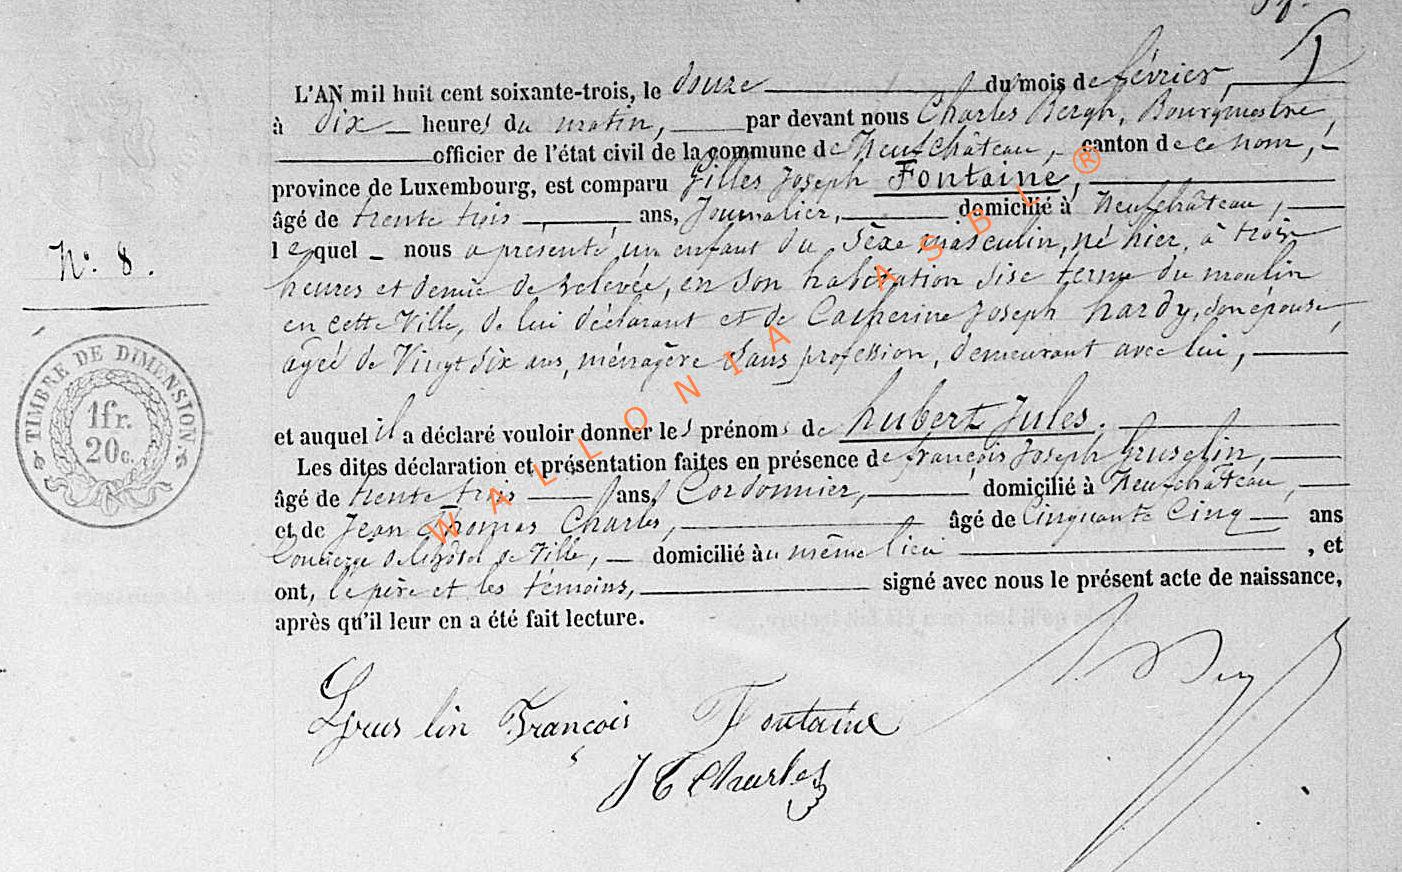 L'AN mil huit cent soixante-trois, le douze du mois de février,
à dix heures du matin, par devant nous Charles Bergh, Bourgmestre,
officier de l'état civil de la commune de Neufchâteau, canton de ce nom,
province de Luxembourg, est comparu Gilles Joseph Fontaine,
âgé de trente trois ans, Journalier, domicilié à Neufchâteau,
lequel nous a présenté un enfant du sèxe masculin, né hier, à trois
N.º 8.
heures et demie de relevée, en son habitation sise terme du moulin
en cette Ville, de lui déclarant et de Catherine Joseph hardy, son épouse,
âgée de Vingt six ans, ménagère sans profession, demeurant avec lui,
TIMBRE DE DIMENSION
1fr.
20c.
et auquel il a déclaré vouloir donner les prénoms de hubert Jules.
Les dites déclaration et présentation faites en présence de françois Joseph Gruselin,
âgé de trente trois ans, Cordonnier, domicilié à Neufchâteau,
et de Jean Thomas Charles, âgé de Cinquante Cinq ans
Concierge de l'hôtel de Ville, domicilié au même lieu , et
ont, le père et les témoins, signé avec nous le présent acte de naissance,
après qu'il leur en a été fait lecture.
Gruslin François Fontaine
J T Charles
WALLONIA ASBL ®